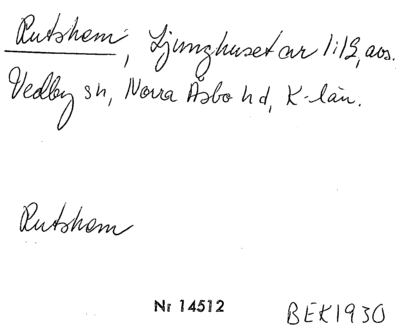 Rutshem, Ljunghuset ar 1:19, avs.
Vedby sn, Norra Åsbo hd, K-län.
Rutshem
Nr 14512
BEK1930